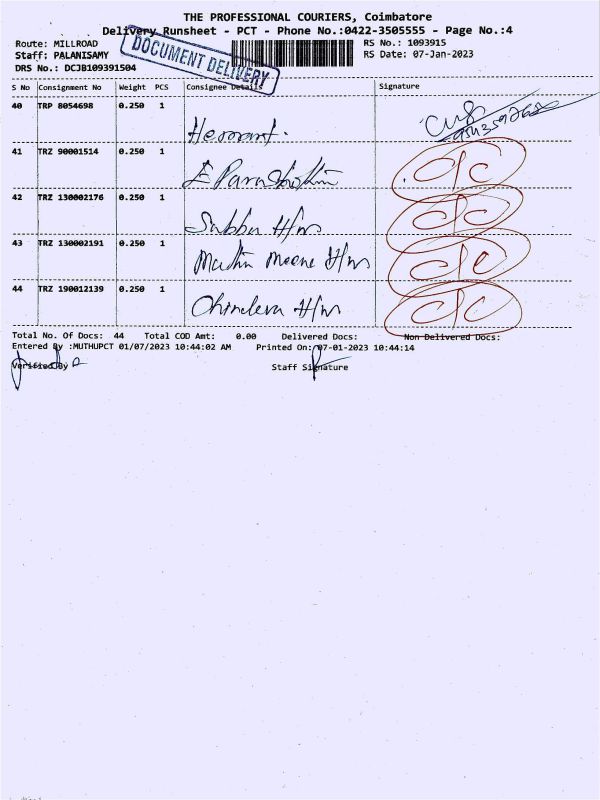 THE PROFESSIONAL COURIERS, Coimbatore
Delivery Runsheet - PCT - Phone No.:0422-3505555 - Page No.:4
Route: MILLROAD
RS No.: 1093915
Staff: PALANISAMY
RS Date: 07-Jan-2023
DRS No.: DCJB109391504
DOCUMENT DELIVERY
S No Consignment No Weight PCS Consignee Details Signature
40 TRP 8054698 0.250 1
41 TRZ 90001514 0.250 1
42 TRZ 130002176 0.250 1
Subbu H/w
43 TRZ 130002191 0.250 1
44 TRZ 190012139 0.250 1
Total No. Of Docs: 44 Total COD Amt: 0.00 Delivered Docs: Non Delivered Docs:
Entered By :MUTHUPCT 01/07/2023 10:44:02 AM Printed On: 07-01-2023 10:44:14
Verified By Staff Signature